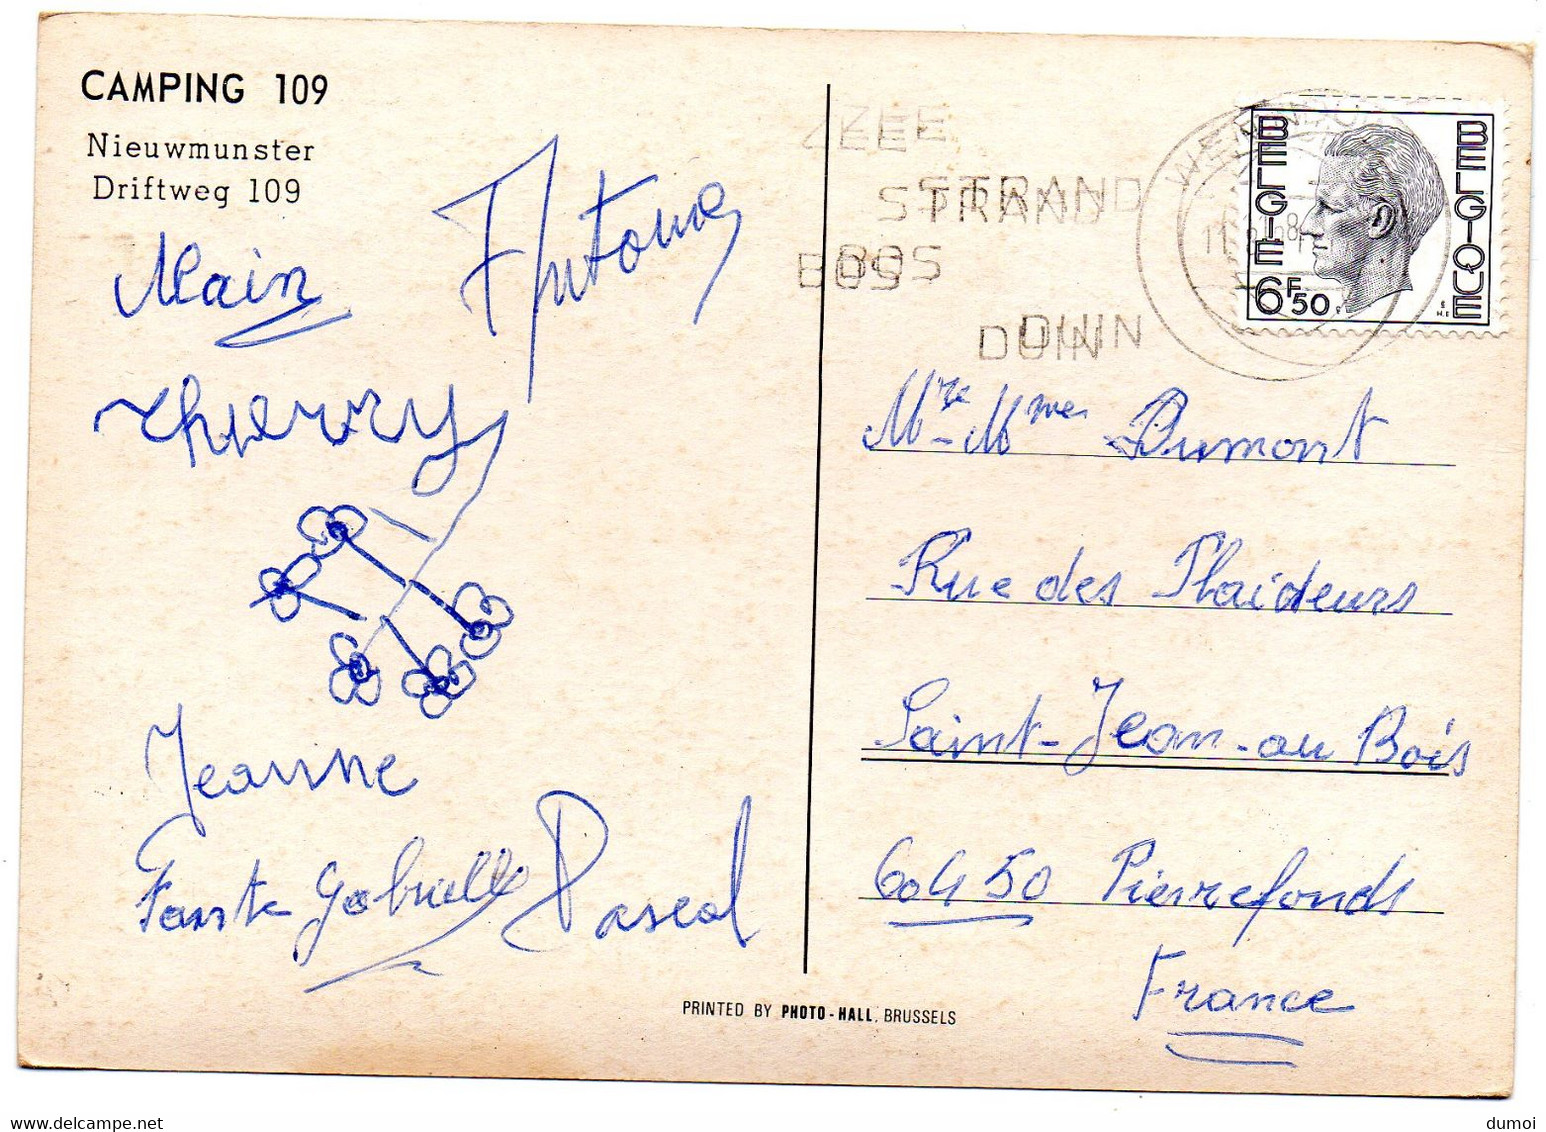 CAMPING 109
Nieuwmunster
Driftweg 109
Alain
Antoine
Thierry
Jeanne
Tante Gabrielle
Pascal
PRINTED BY PHOTO-HALL. BRUSSELS
ZEE
STRAND
BOS
DUIN
BELGIE
BELGIQUE
6F50
Mme Dumont
Rue des Plaideurs
Saint-Jean-au Bois
60450 Pierrefonds
France
delcampe.net
dumoi